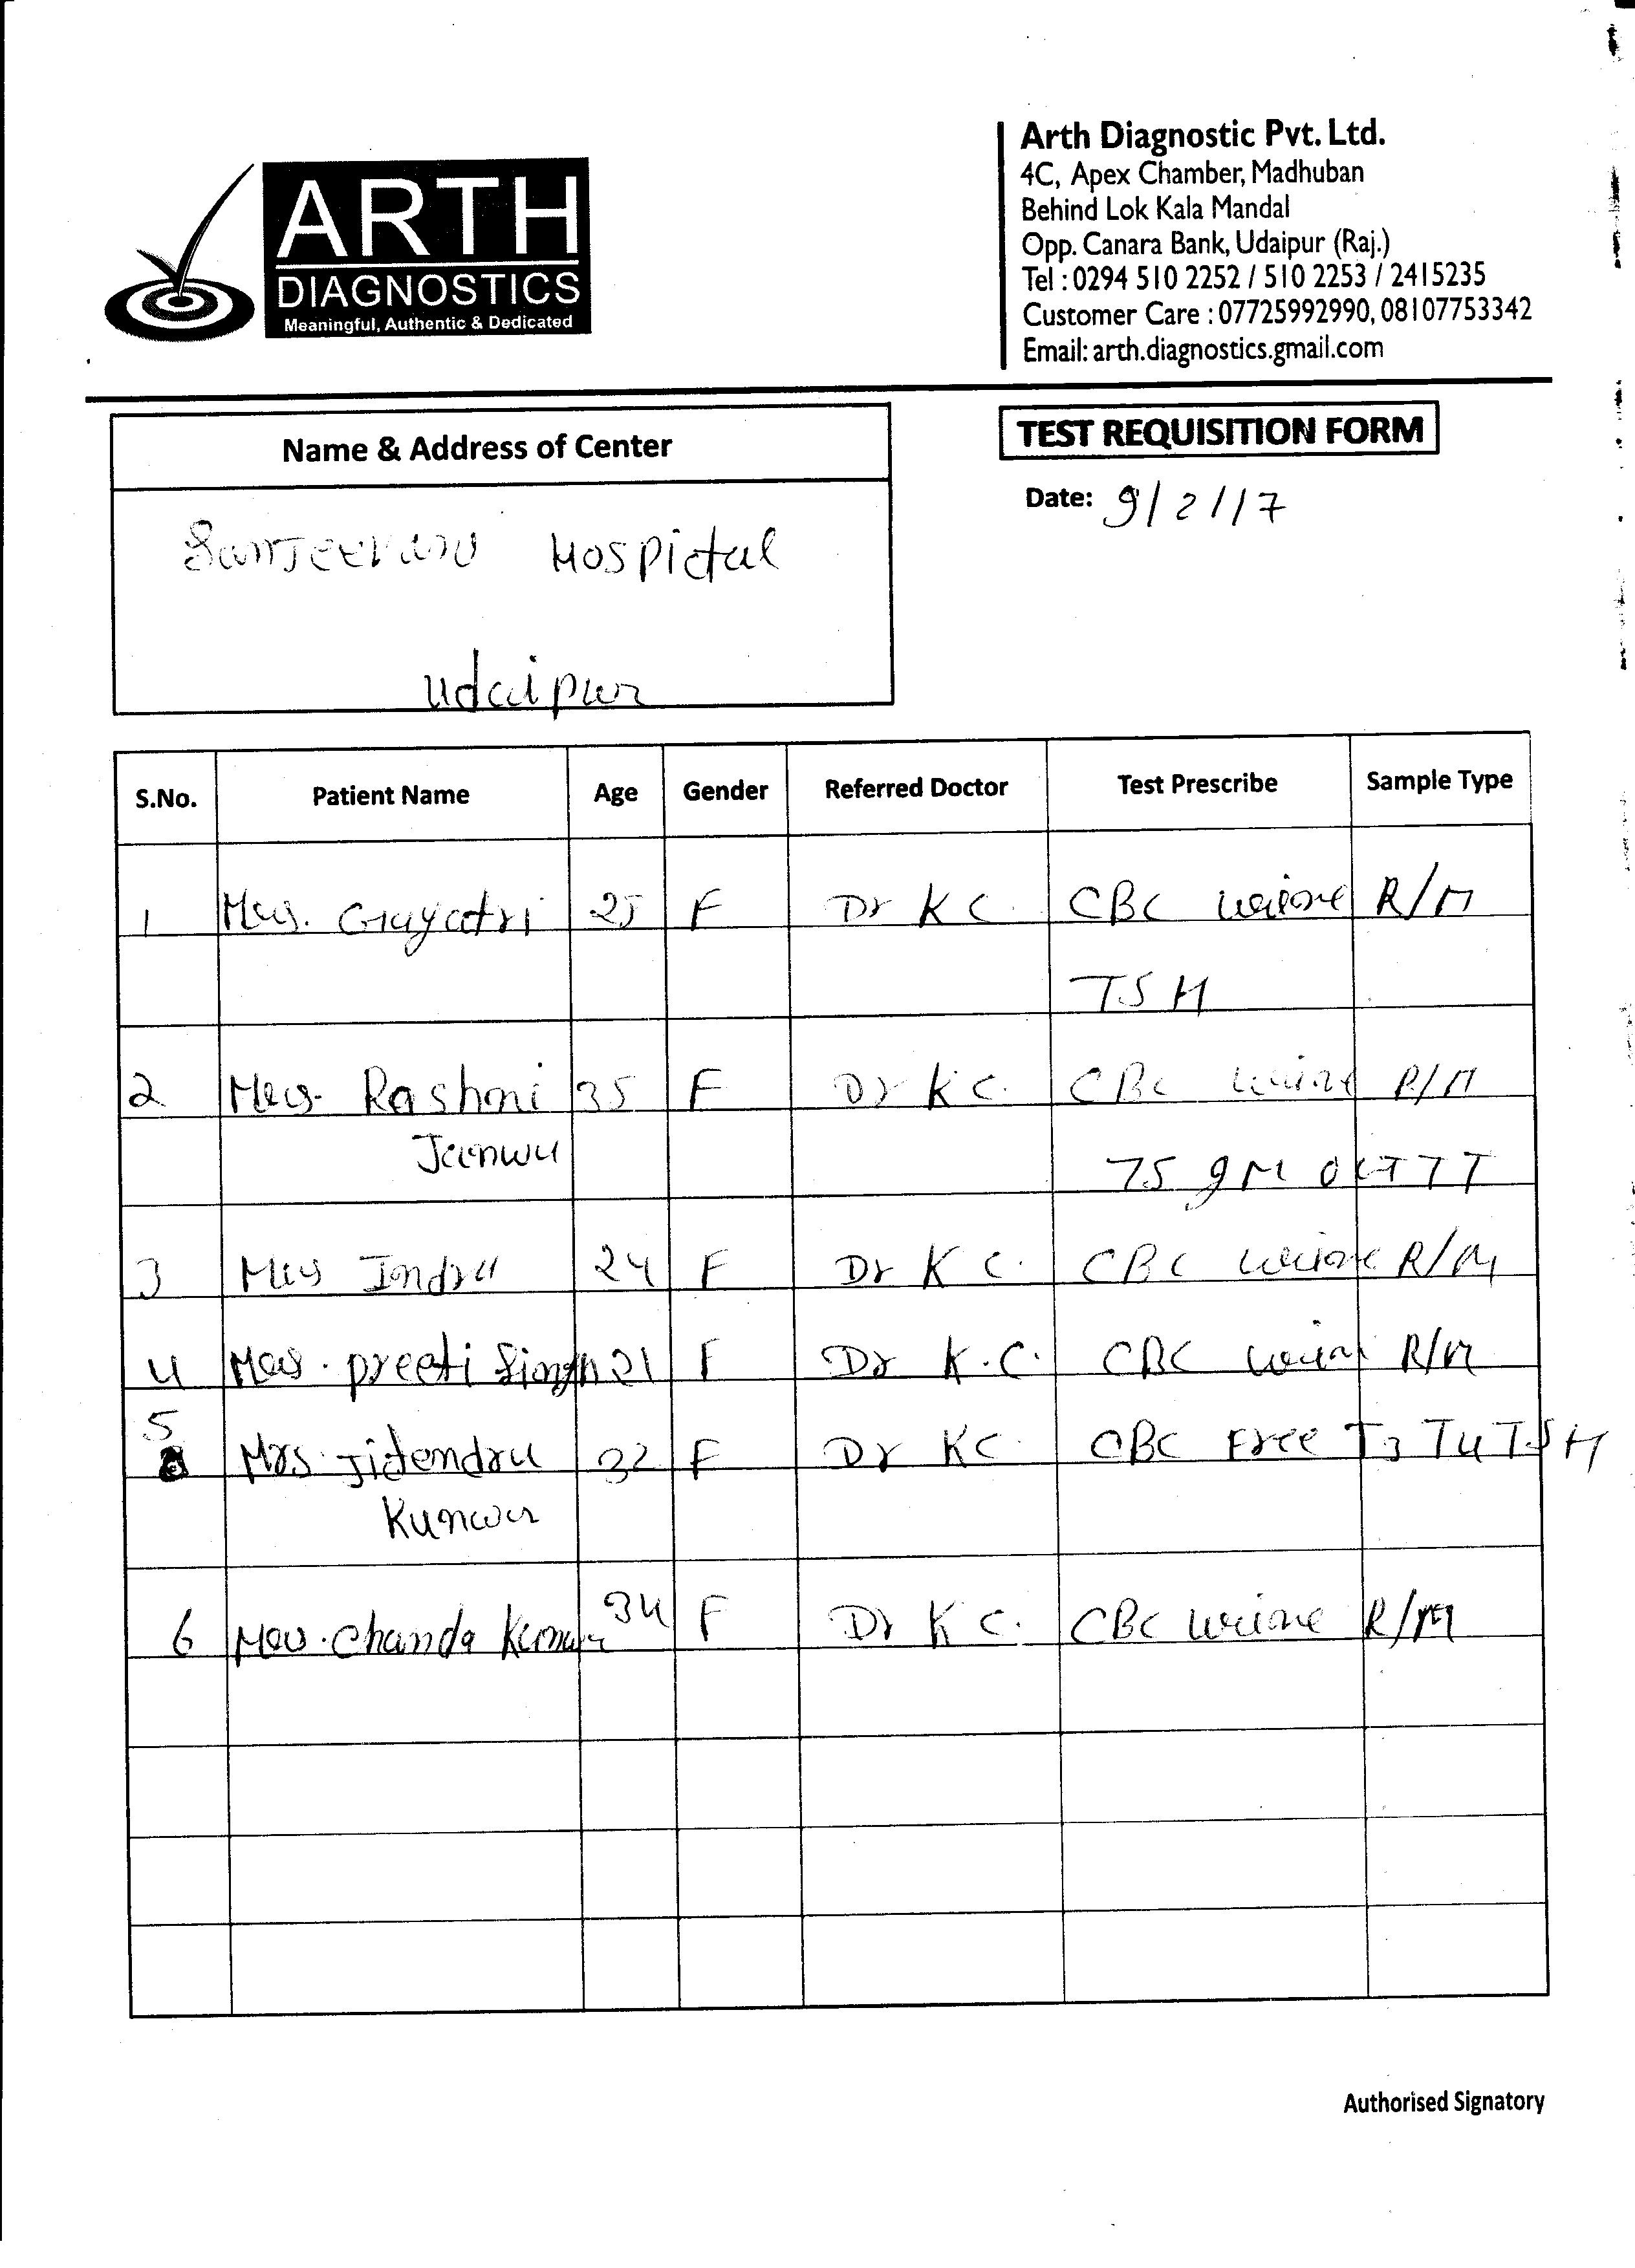 ARTH
DIAGNOSTICS
Meaningful, Authentic & Dedicated
Arth Diagnostic Pvt. Ltd.
4C, Apex Chamber, Madhuban
Behind Lok Kala Mandal
Opp. Canara Bank, Udaipur (Raj.)
Tel : 0294 510 2252 / 510 2253 / 2415235
Customer Care : 07725992990, 08107753342
Email: arth.diagnostics.gmail.com
Name & Address of Center
TEST REQUISITION FORM
Date: 9/2/17
Hospital
Udaipur
S.No. Patient Name Age Gender Referred Doctor Test Prescribe Sample Type
1 Mrs. Gayatri 25 F Dr K C. CBC urine R/M
TSH
2 Mrs. Rashmi 35 F Dr K C. CBC urine R/M
75 gm
3 Mrs Indra 24 F Dr K C. CBC urine R/M
4 Mrs. preeti Singh 21 F Dr K.C. CBC urine R/M
5 Mrs. Jitendra 32 F Dr KC. CBC Free T3 T4 TSH
Kunwar
6 Mrs. Chanda Kunwar 34 F Dr K C. CBC urine R/M
Authorised Signatory